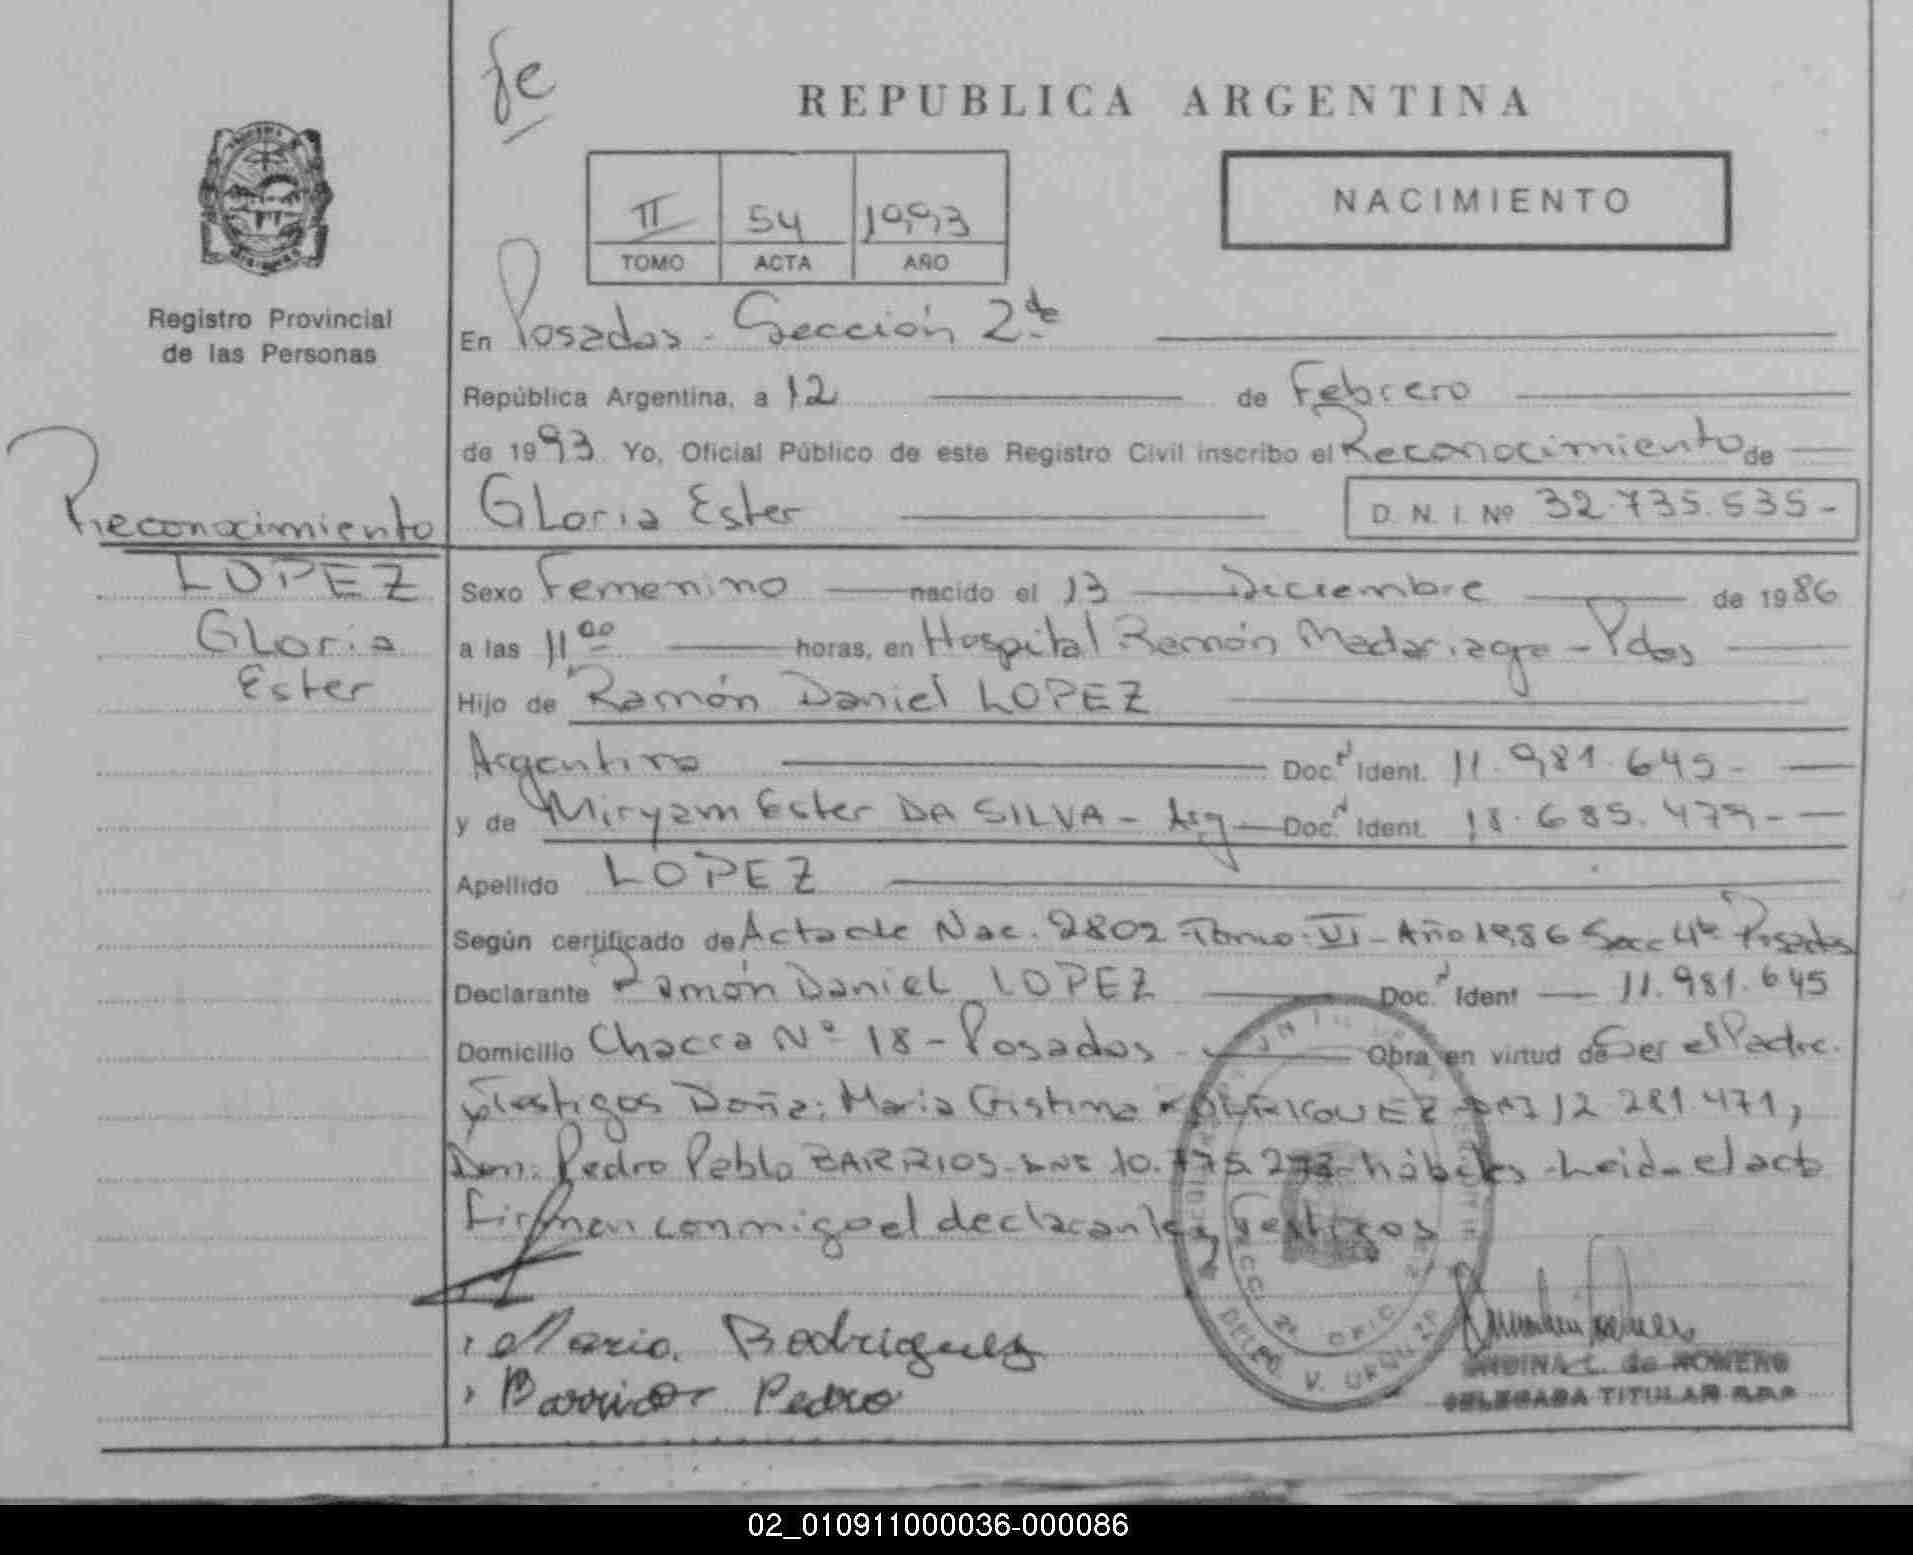 fe
REPUBLICA ARGENTINA
II 54 1993
TOMO ACTA AÑO
NACIMIENTO
Registro Provincial
de las Personas
En Posadas - Sección 2da
República Argentina, a 12 de Febrero
de 1993. Yo, Oficial Público de este Registro Civil inscribo el Reconocimiento de
Gloria Ester D. N. I. Nº 32.735.535-
Reconocimiento
LOPEZ
Gloria
Ester
Sexo Femenino nacido el 13 Diciembre de 1986
a las 11ºº horas, en Hospital Ramón Madariaga - Pdas
Hijo de Ramón Daniel LOPEZ
Argentino Doc. Ident. 11.981.645-
y de Miryam Ester DA SILVA - Arg Doc. Ident. 18.685.479-
Apellido LOPEZ
Según certificado de Acta de Nac. 2802 Tomo VI - Año 1986 Secc 4ta Posadas
Declarante Ramón Daniel LOPEZ Doc. Ident 11.981.645
Domicilio Chacra Nº 18 - Posadas - Obra en virtud de Ser el Padre.
Testigos Doña: Maria Cristina RODRIGUEZ DNI 12 281.471,
Don: Pedro Pablo BARRIOS - DNI 10. hábiles - Leida el acta
firman conmigo el declarante y testigos
Maria Rodriguez
Barrios Pedro
SECC. 2ª OFIC.
DELEG. V. URQUIZA
L. de ROMERO
DELEGADA TITULAR R.D.P
02_010911000036-000086